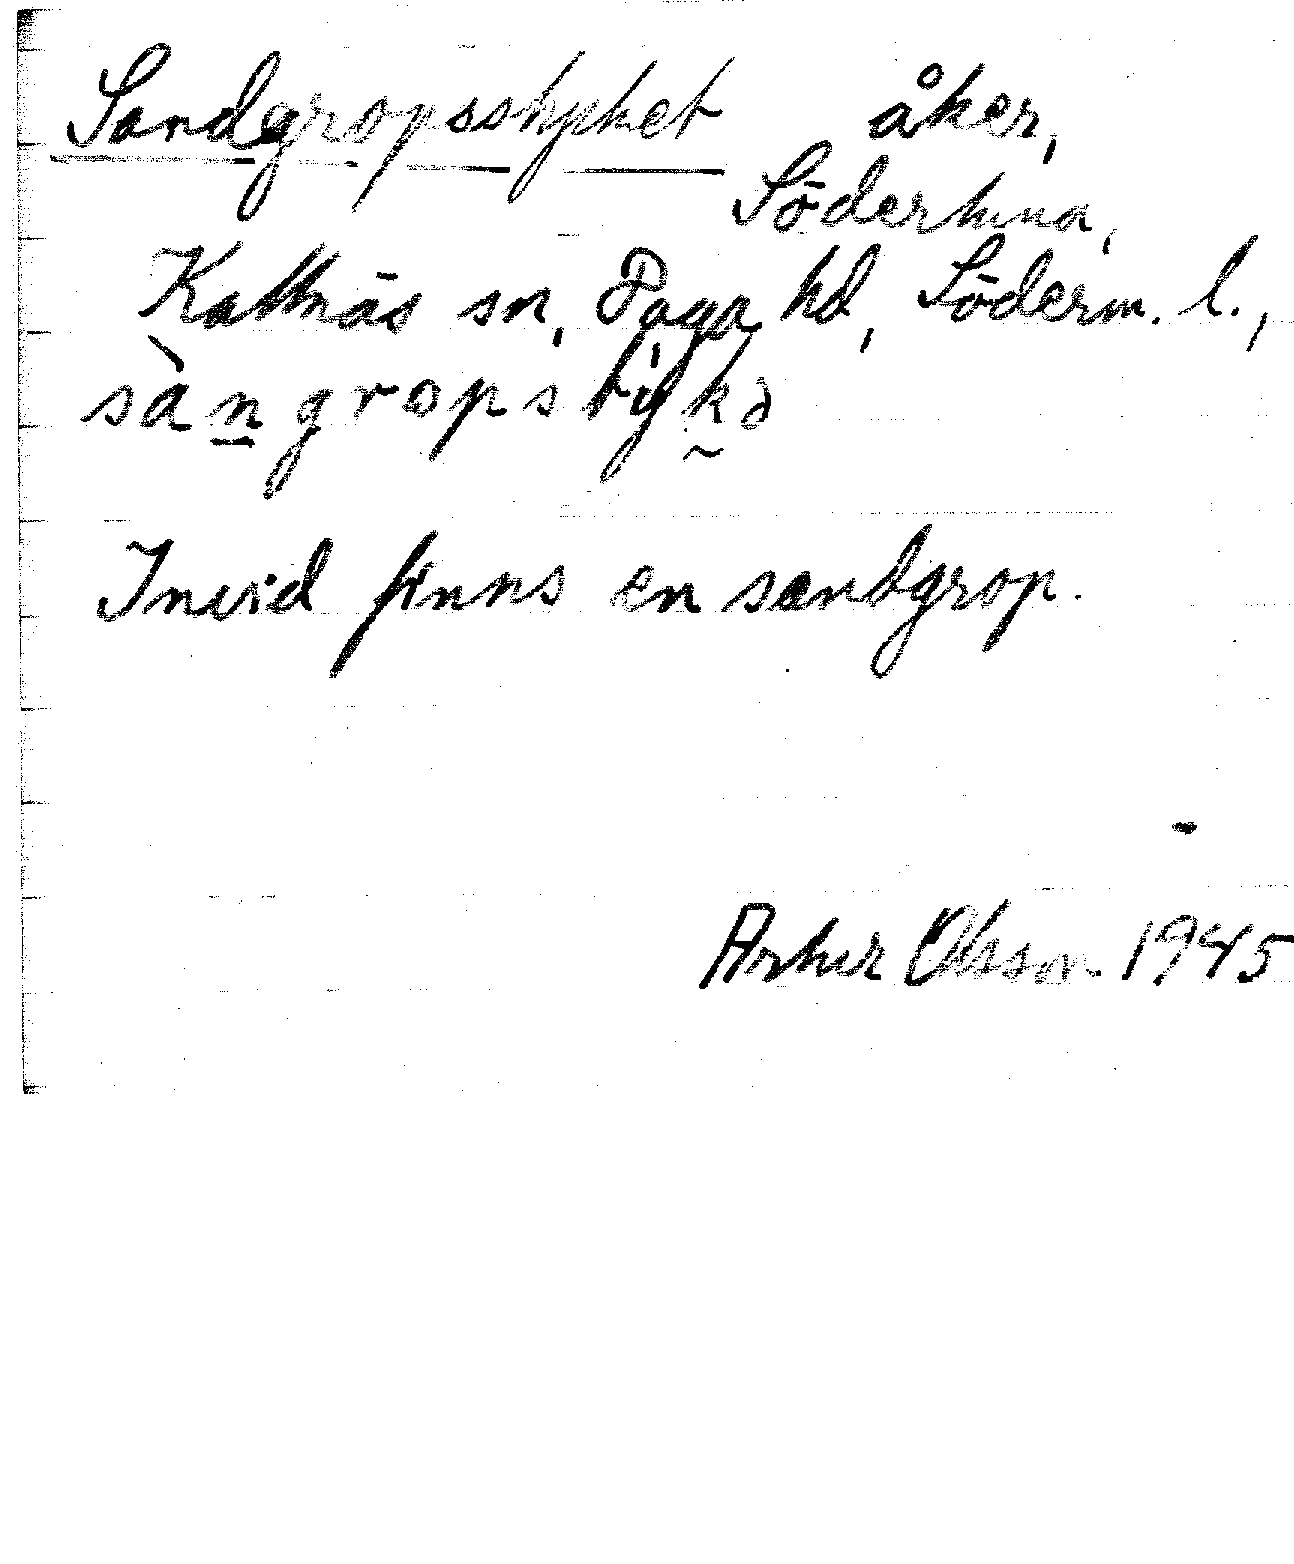 Sandgropsstycket åker,
Södertuna,
Kattnäs sn, Daga hd, Söderm. l.,
sàngropstykə
Invid finns en sandgrop.
Artur Olsson 1945